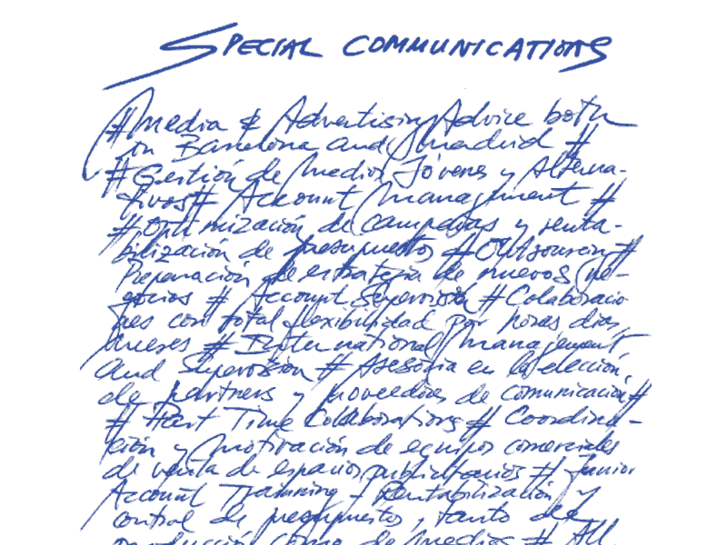 SPECIAL COMMUNICATIONS
# Media & Advertising Advice both
in Barcelona and Madrid #
# Gestión de Medios Jóvenes y Alterna-
tivos # Account Management #
# Optimización de campañas y renta-
bilización de presupuestos # Outsourcing #
Preparación de estrategia de nuevos ne-
gocios # Account Supervision # Colaboracio-
nes con total flexibilidad por horas, días,
meses # International Management
and Supervision # Asesoría en la elección
de partners y proveedores de comunicación #
# Part Time Colaborations # Coordina-
ción y motivación de equipos comerciales
de venta de espacios publicitarios # Junior
Account Trainning # Rentabilización y
control de presupuestos, tanto de
producción como de medios # All